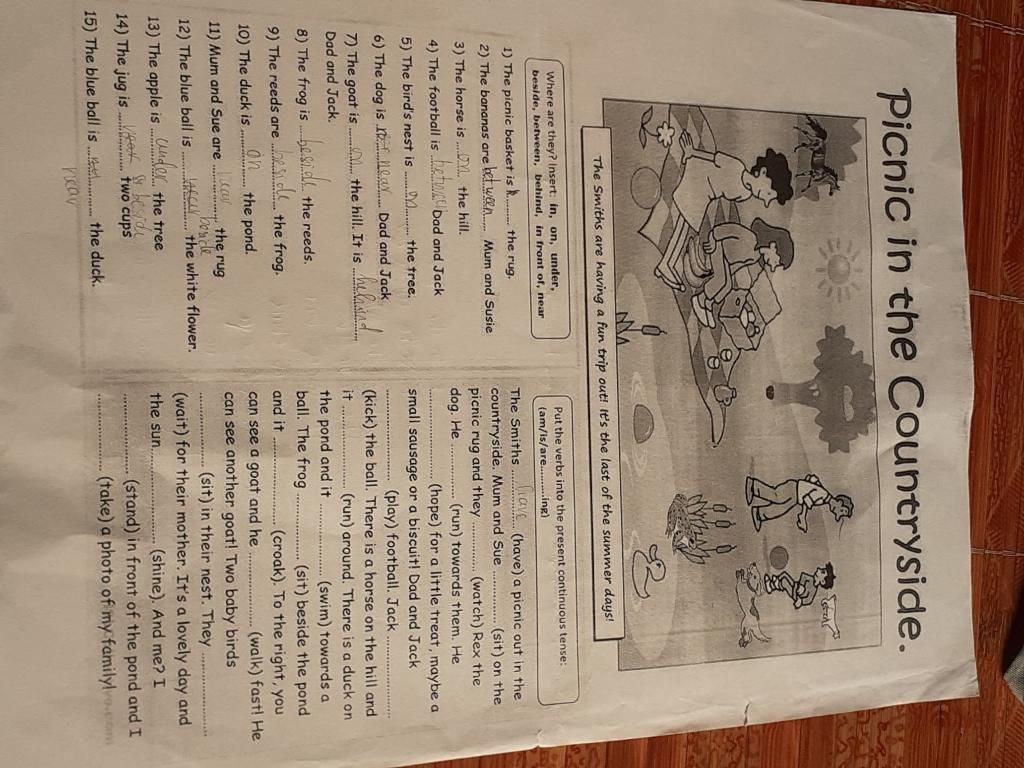 Picnic in the Countryside.
The Smiths are having a fun trip out! It's the last of the summer days!
Where are they? Insert: in, on, under,
beside, between, behind, in front of, near
1) The picnic basket is ......... the rug.
2) The bananas are between...... Mum and Susie
3) The horse is ...on... the hill.
4) The football is ... Dad and Jack
5) The bird's nest is .....on...... the tree.
6) The dog is ...near...... Dad and Jack
7) The goat is .....on..... the hill. It is ...behind...
Dad and Jack.
8) The frog is ...beside... the reeds.
9) The reeds are ...beside... the frog.
10) The duck is .....on..... the pond.
11) Mum and Sue are ............ the rug
beside
12) The blue ball is ............ the white flower.
13) The apple is ...under... the tree
14) The jug is ...beside two cups
15) The blue ball is ............ the duck.
near
Put the verbs into the present continuous tense:
(am/is/are...........ing)
The Smiths ...have... (have) a picnic out in the
countryside. Mum and Sue ............ (sit) on the
picnic rug and they ............ (watch) Rex the
dog. He ............ (run) towards them. He
............... (hope) for a little treat, maybe a
small sausage or a biscuit! Dad and Jack
.................. (play) football. Jack ..................
(kick) the ball. There is a horse on the hill and
it ............ (run) around. There is a duck on
the pond and it ............ (swim) towards a
ball. The frog ............ (sit) beside the pond
and it ............... (croak). To the right, you
can see a goat and he ............... (walk) fast! He
can see another goat! Two baby birds
.................. (sit) in their nest. They ..................
(wait) for their mother. It's a lovely day and
the sun .................. (shine). And me? I
.................. (stand) in front of the pond and I
.................. (take) a photo of my family!